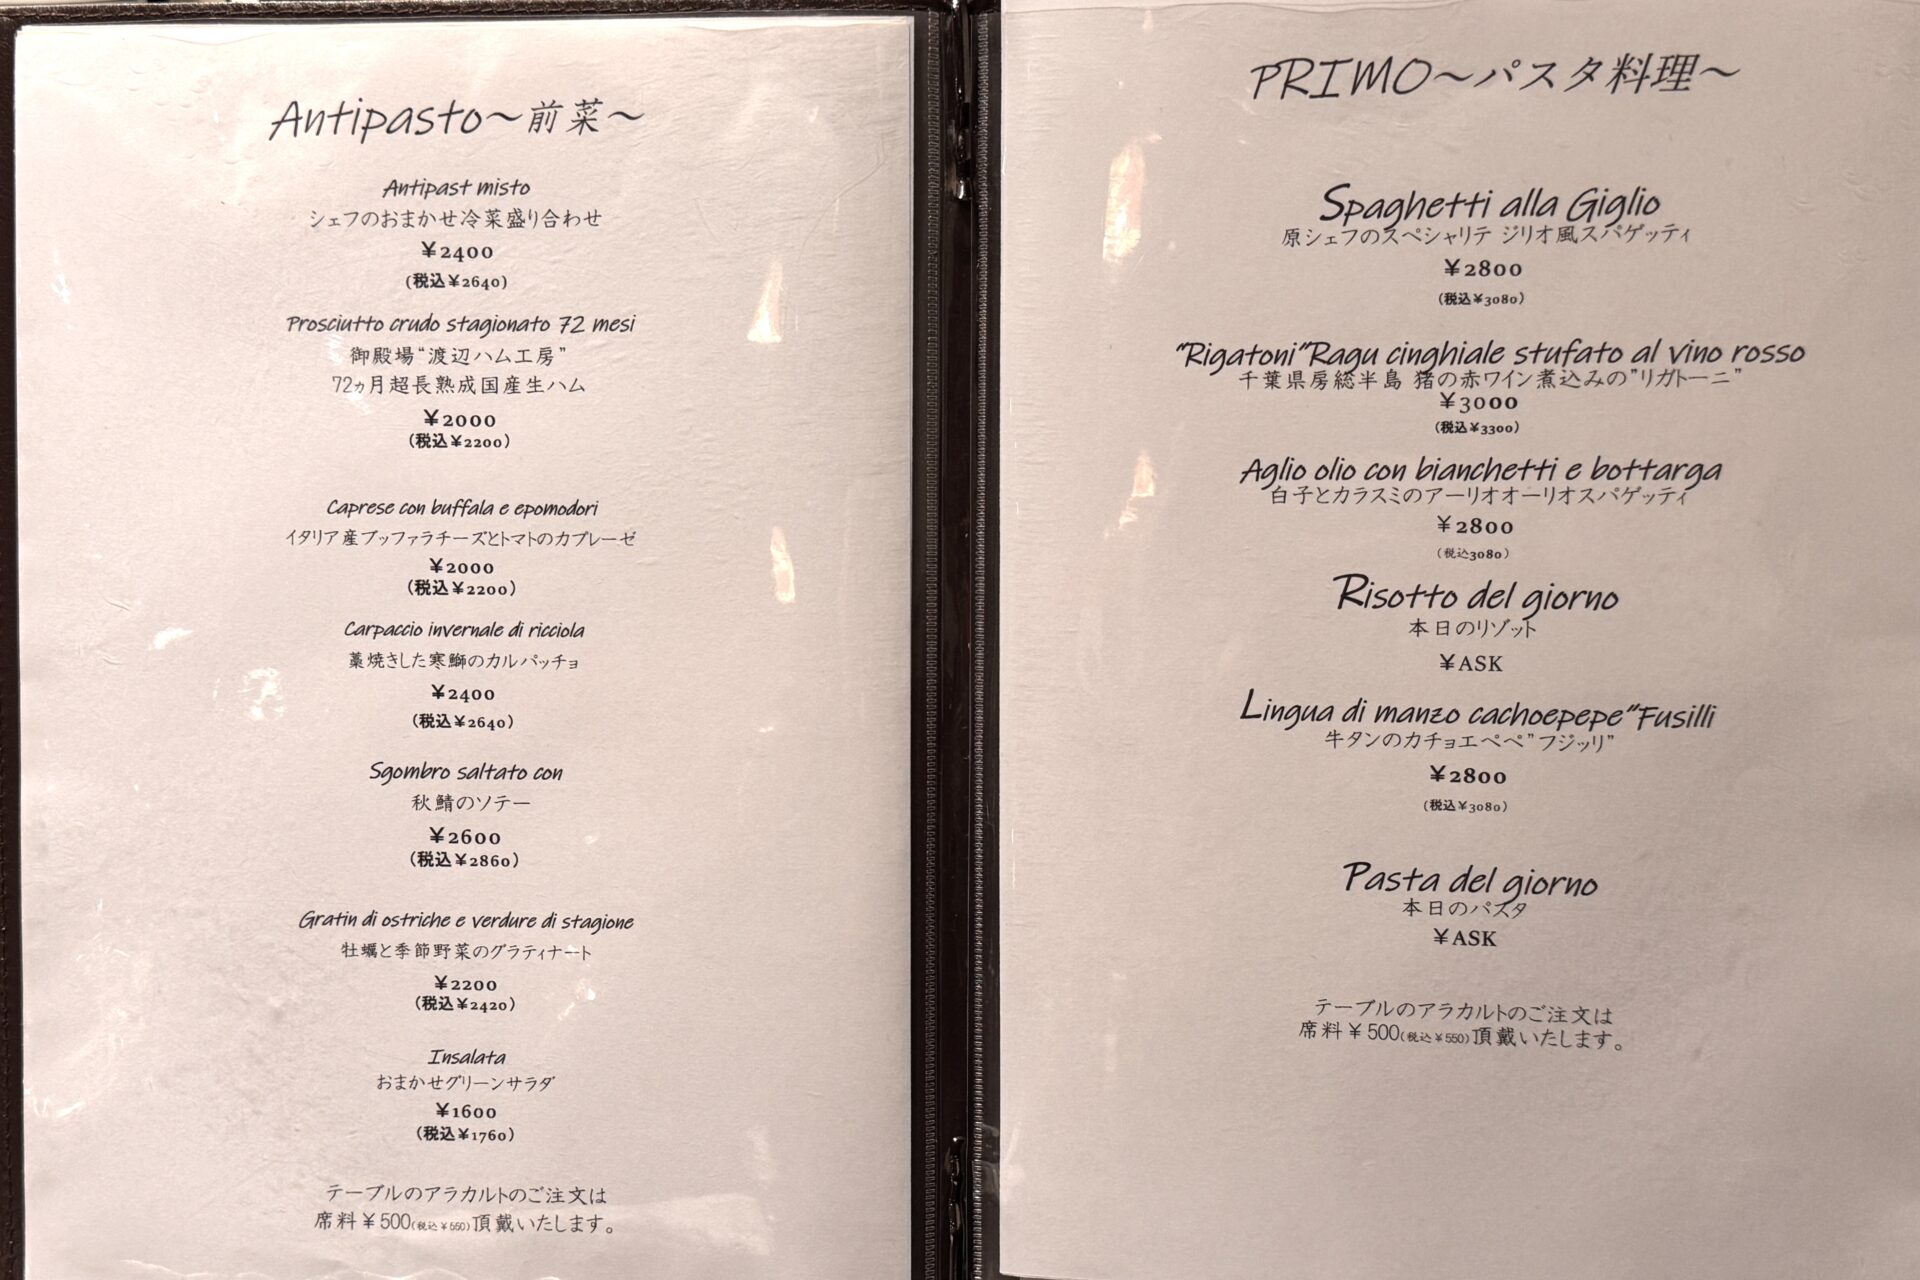 Antipasto～前菜～
Antipast misto
シェフのおまかせ冷菜盛り合わせ
￥2400
(税込￥2640)
Prosciutto crudo stagionato 72 mesi
御殿場“渡辺ハム工房”
72ヵ月超長熟成国産生ハム
￥2000
(税込￥2200)
Caprese con buffala e epomodori
イタリア産ブッファラチーズとトマトのカプレーゼ
￥2000
(税込￥2200)
Carpaccio invernale di ricciola
藁焼きした寒鰤のカルパッチョ
￥2400
(税込￥2640)
Sgombro saltato con
秋鯖のソテー
￥2600
(税込￥2860)
Gratin di ostriche e verdure di stagione
牡蠣と季節野菜のグラティナート
￥2200
(税込￥2420)
Insalata
おまかせグリーンサラダ
￥1600
(税込￥1760)
テーブルのアラカルトのご注文は
席料￥500(税込￥550)頂戴いたします。
PRIMO～パスタ料理～
Spaghetti alla Giglio
原シェフのスペシャリテ ジリオ風スパゲッティ
￥2800
(税込￥3080)
“Rigatoni”Ragu cinghiale stufato al vino rosso
千葉県房総半島 猪の赤ワイン煮込みの”リガトーニ”
￥3000
(税込￥3300)
Aglio olio con bianchetti e bottarga
白子とカラスミのアーリオオーリオスパゲッティ
￥2800
(税込3080)
Risotto del giorno
本日のリゾット
￥ASK
Lingua di manzo cachoepepe”Fusilli
牛タンのカチョエペペ”フジッリ”
￥2800
(税込￥3080)
Pasta del giorno
本日のパスタ
￥ASK
テーブルのアラカルトのご注文は
席料￥500(税込￥550)頂戴いたします。